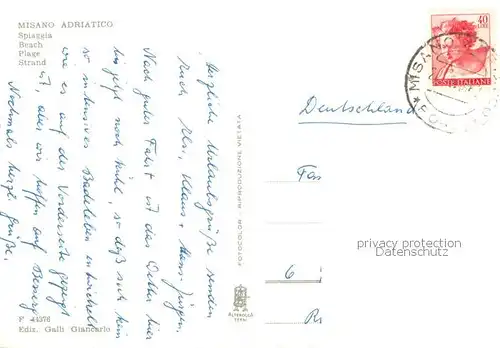 MISANO ADRIATICO
Spiaggia
Beach
Plage
Strand
Herzliche Urlaubsgrüße senden
Euch Uli, Klaus + Hans-Jürgen.
Nach guter Fahrt ist das Wetter hier
bis jetzt noch kühl, so daß sich kein
so intensives Badeleben entwickelt
wie es auf der Vorderseite gezeigt
ist, aber wir hoffen auf Besserg.
Nochmals herzl. Grüße.
F 44376
Ediz. Galli Giancarlo
FOTOCOLOR - RIPRODUZIONE VIETATA
ALTEROCCA
TERNI
40
POSTE ITALIANE
MISANO
Deutschland
Fa
6
privacy protection
Datenschutz